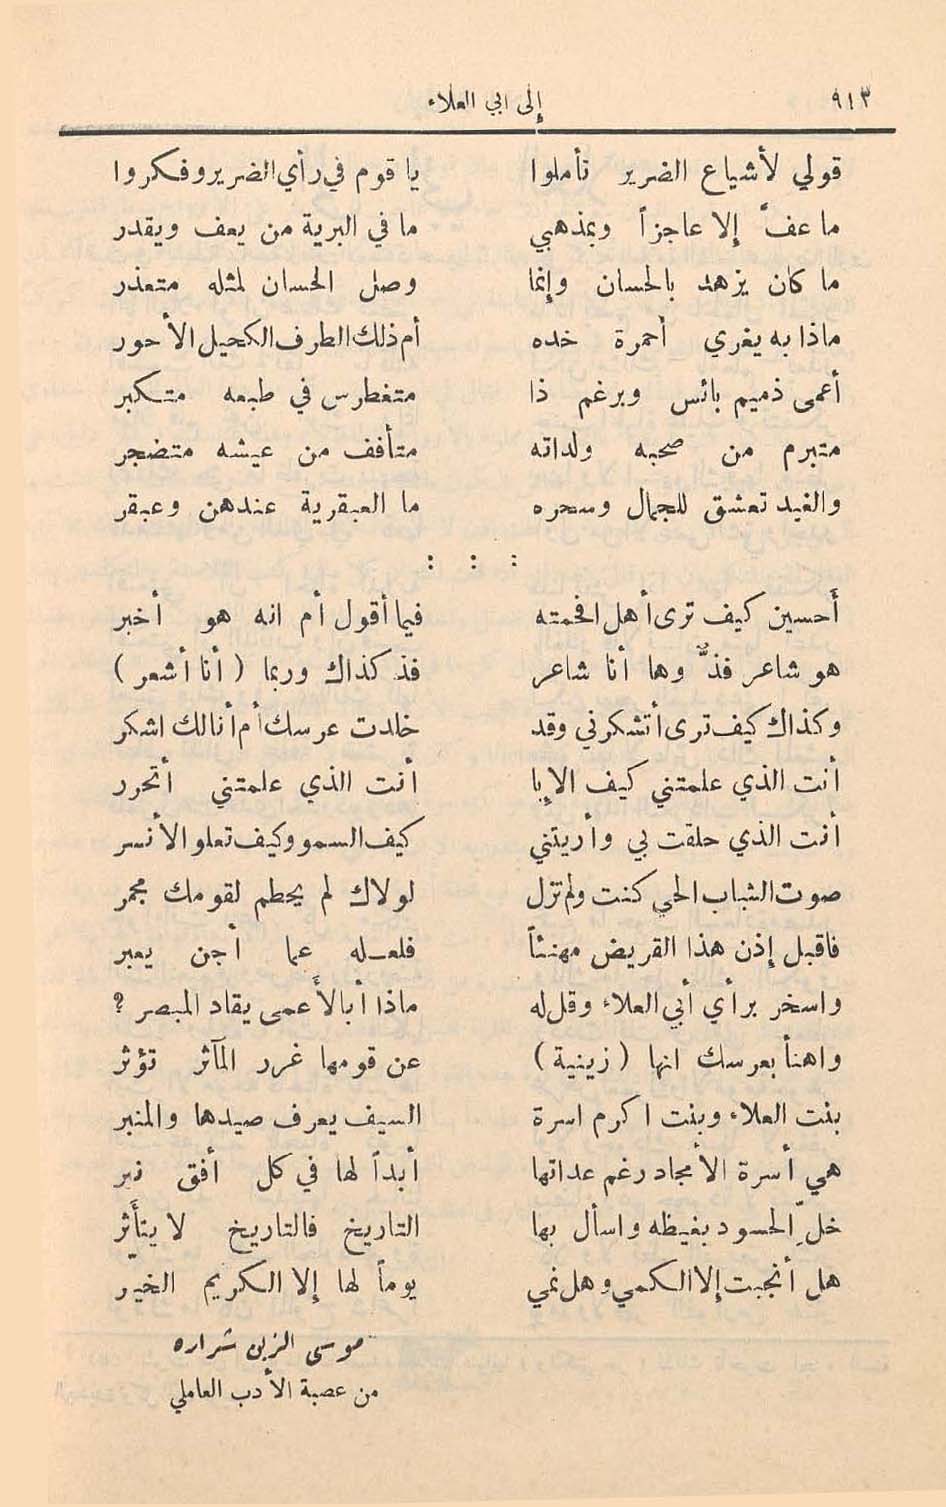 ٩١٣ إلى ابي العلاء
قولي لأشياع الضرير تأملوا يا قوم في رأي الضرير وفكروا
ما عفّ إلا عاجزاً وبمذهبي ما في البرية من يعف ويقدر
ما كان يزهد بالحسان وإنما وصل الحسان لمثله متعذر
ماذا به يغري أحمرة خده أم ذلك الطرف الكحيل الأحور
أعمى ذميم بائس وبرغم ذا متغطرس في طبعه متكبر
متبرم من صحبه ولداته متأفف من عيشه متضجر
والغيد تعشق للجمال وسحره ما العبقرية عندهن وعبقر
: : :
أحسين كيف ترى أهل افحمته فيما أقول أم انه هو أخبر
هو شاعر فذٌّ وها أنا شاعر فذ كذاك وربما ( أنا أشعر )
وكذاك كيف ترى أتشكرني وقد خلدت عرسك أم أنا لك اشكر
أنت الذي علمتني كيف الإبا أنت الذي علمتني أتحرر
أنت الذي حلقت بي وأريتني كيف السمو وكيف تعلو الأنسر
صوت الشباب الحي كنت ولم تزل لولاك لم يحطم لقومك مجمر
فاقبل إذن هذا القريض مهنئاً فلعله عما أجن يعبر
واسخر برأي أبي العلاء وقل له ماذا أبالأعمى يقاد المبصر ؟
واهنأ بعرسك انها ( زينية ) عن قومها غرر المآثر تؤثر
بنت العلاء وبنت اكرم اسرة السيف يعرف صيدها والمنبر
هي أسرة الأمجاد رغم عداتها أبداً لها في كل أفق نير
خلِّ الحسود بغيظه واسأل بها التاريخ فالتاريخ لا يتأثر
هل أنجبت إلا الكمي وهل نمي يوماً لها إلا الكريم الخيّر
موسى الزين شراره
من عصبة الأدب العاملي